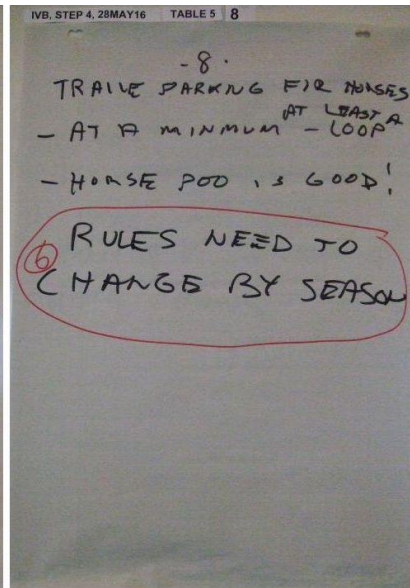 IVB, STEP 4, 28MAY16 TABLE 5 8
- 8 .
TRAILE PARKING FIR HORSES
- AT A MINMUM - AT LEAST A LOOP
- HORSE POO IS GOOD!
6 RULES NEED TO
CHANGE BY SEASON